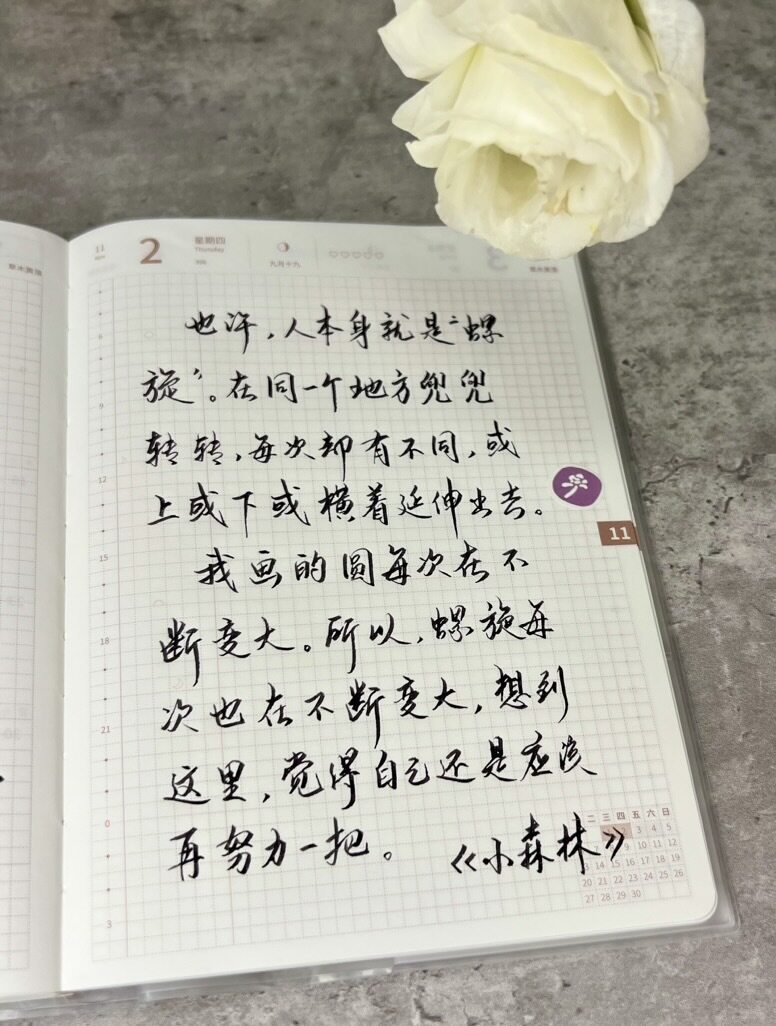 11
2
星期四
Thursday
306
九月十九
也许，人本身就是“螺
旋”。在同一个地方兜兜
转转，每次却有不同，或
上或下或横着延伸出去。
我画的圆每次在不
断变大。所以，螺旋每
次也在不断变大，想到
这里，觉得自己还是应该
再努力一把。 《小森林》
11
6
9
12
15
18
21
0
3
二 三 四 五 六 日
3 4 5
10 11 12
14 15 16 17 18 19
20 21 22 23 24 25 26
27 28 29 30